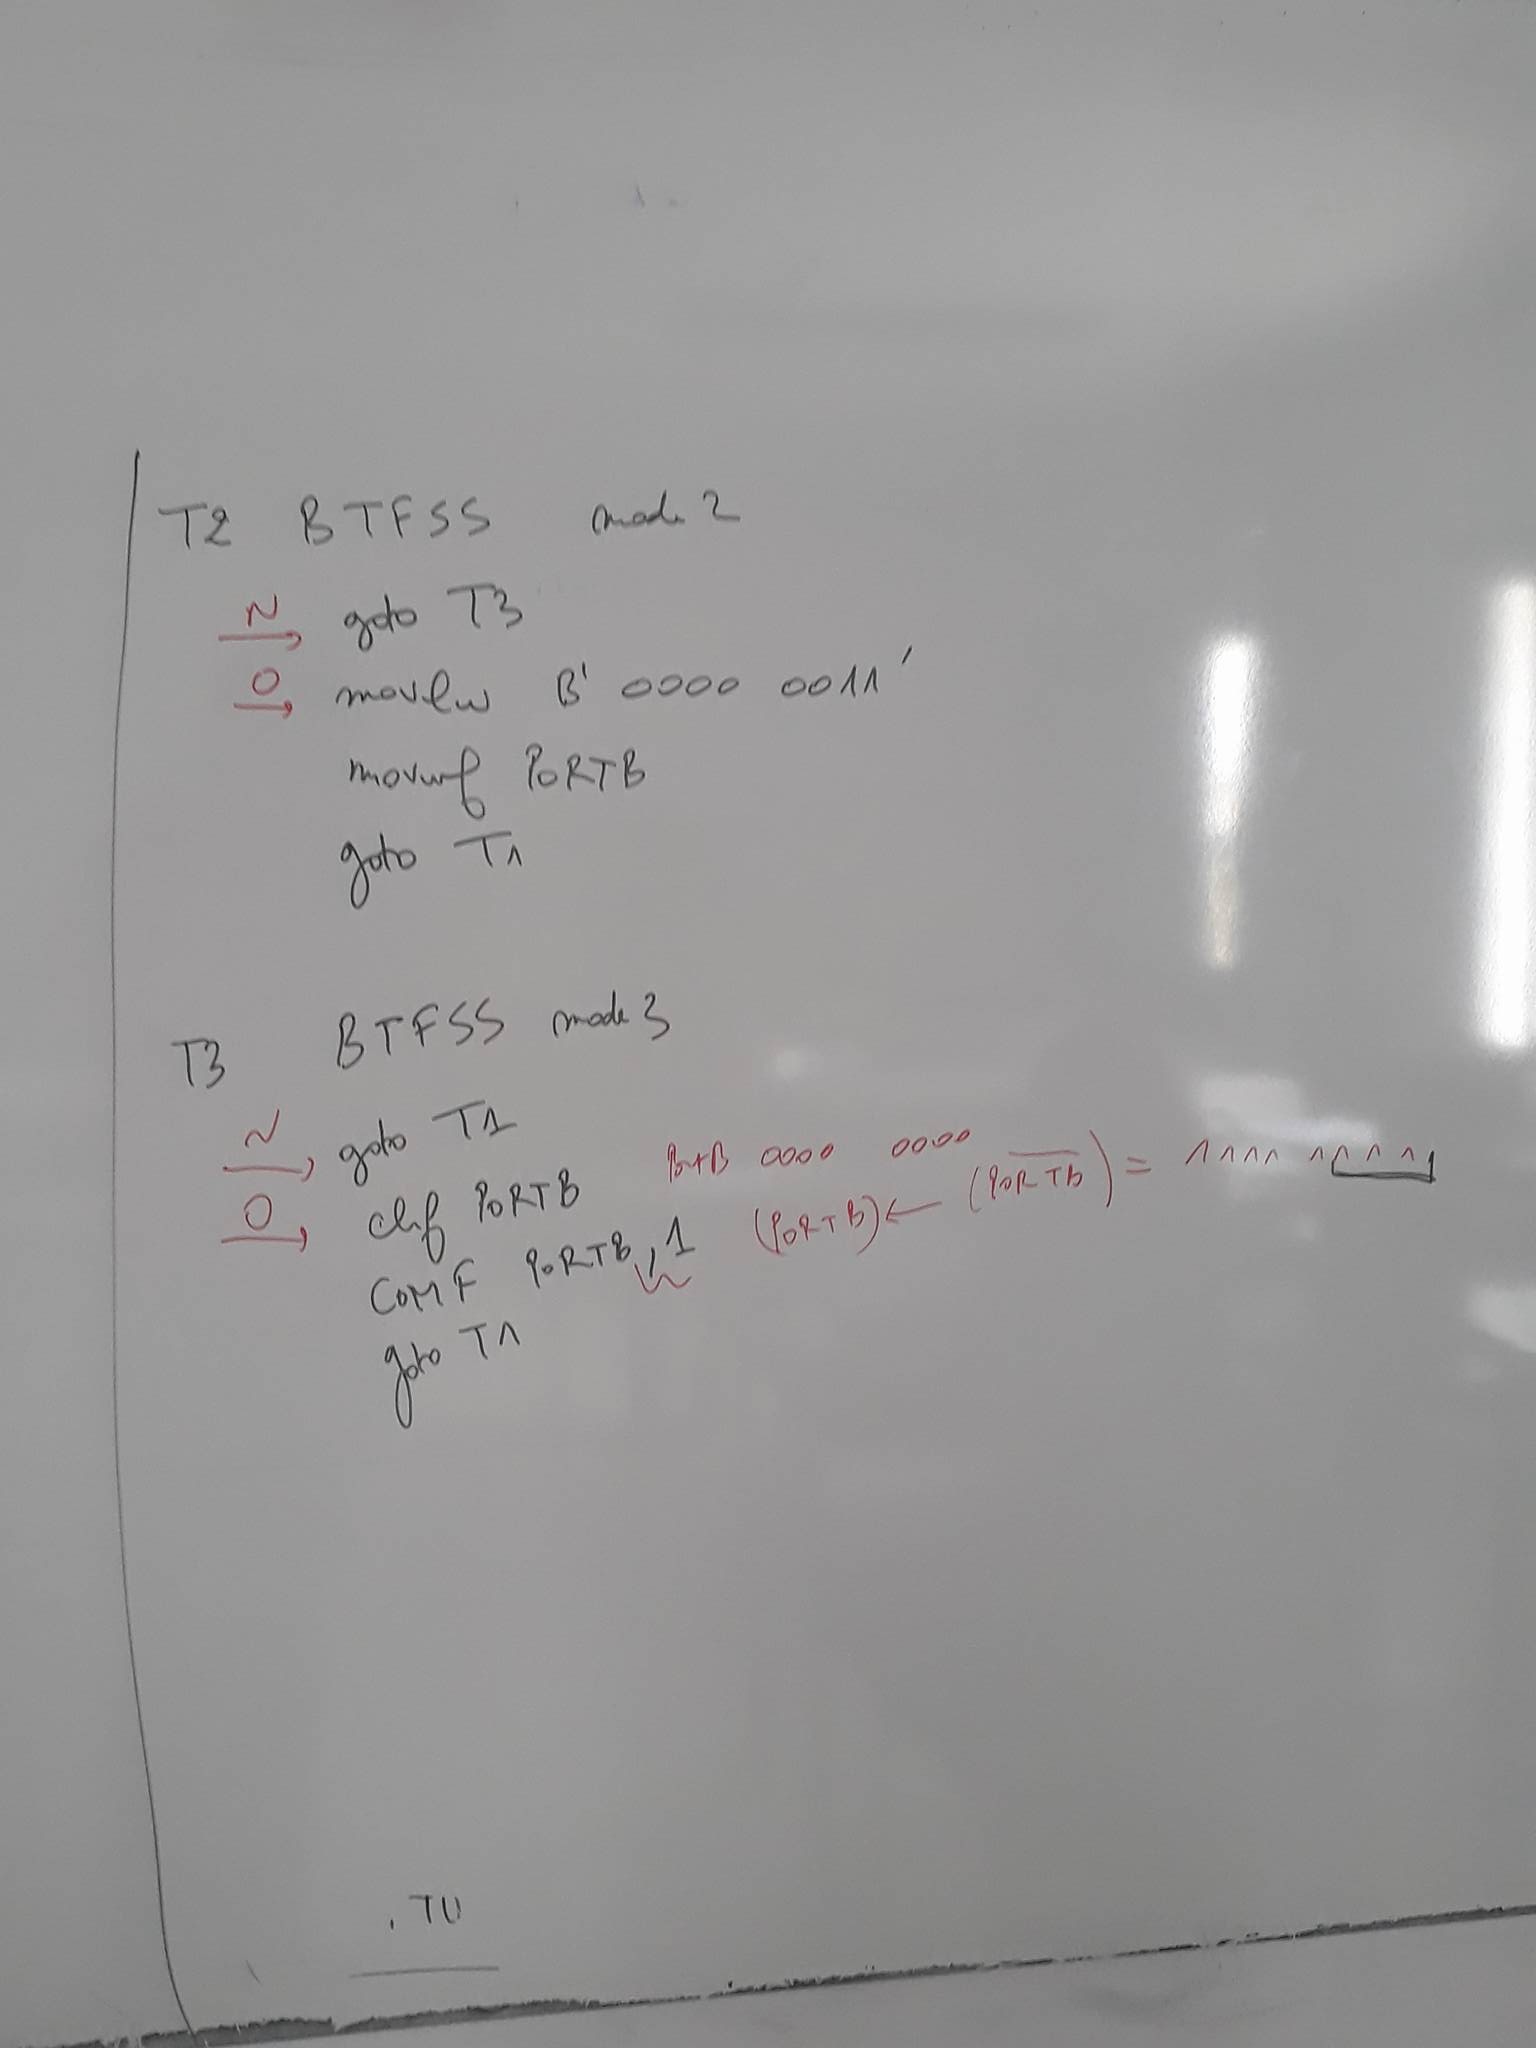 T2 BTFSS mode 2
N goto T3
O movlw B' 0000 0011'
movwf PORTB
goto T1
T3 BTFSS mode 3
N goto T1
O clrf PORTB PortB 0000 0000
COMF PORTB,1 (PORTB) ← (PORTB) = 1111 11111
goto T1